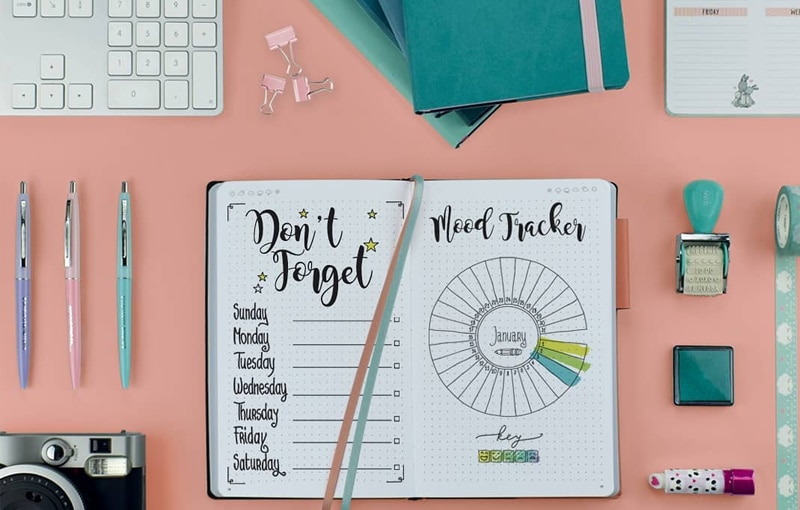 FRIDAY
7
8
9
4
5
6
1
2
3
0
Don't
Forget
Sunday
Monday
Tuesday
Wednesday
Thursday
Friday
Saturday
Mood Tracker
January
key